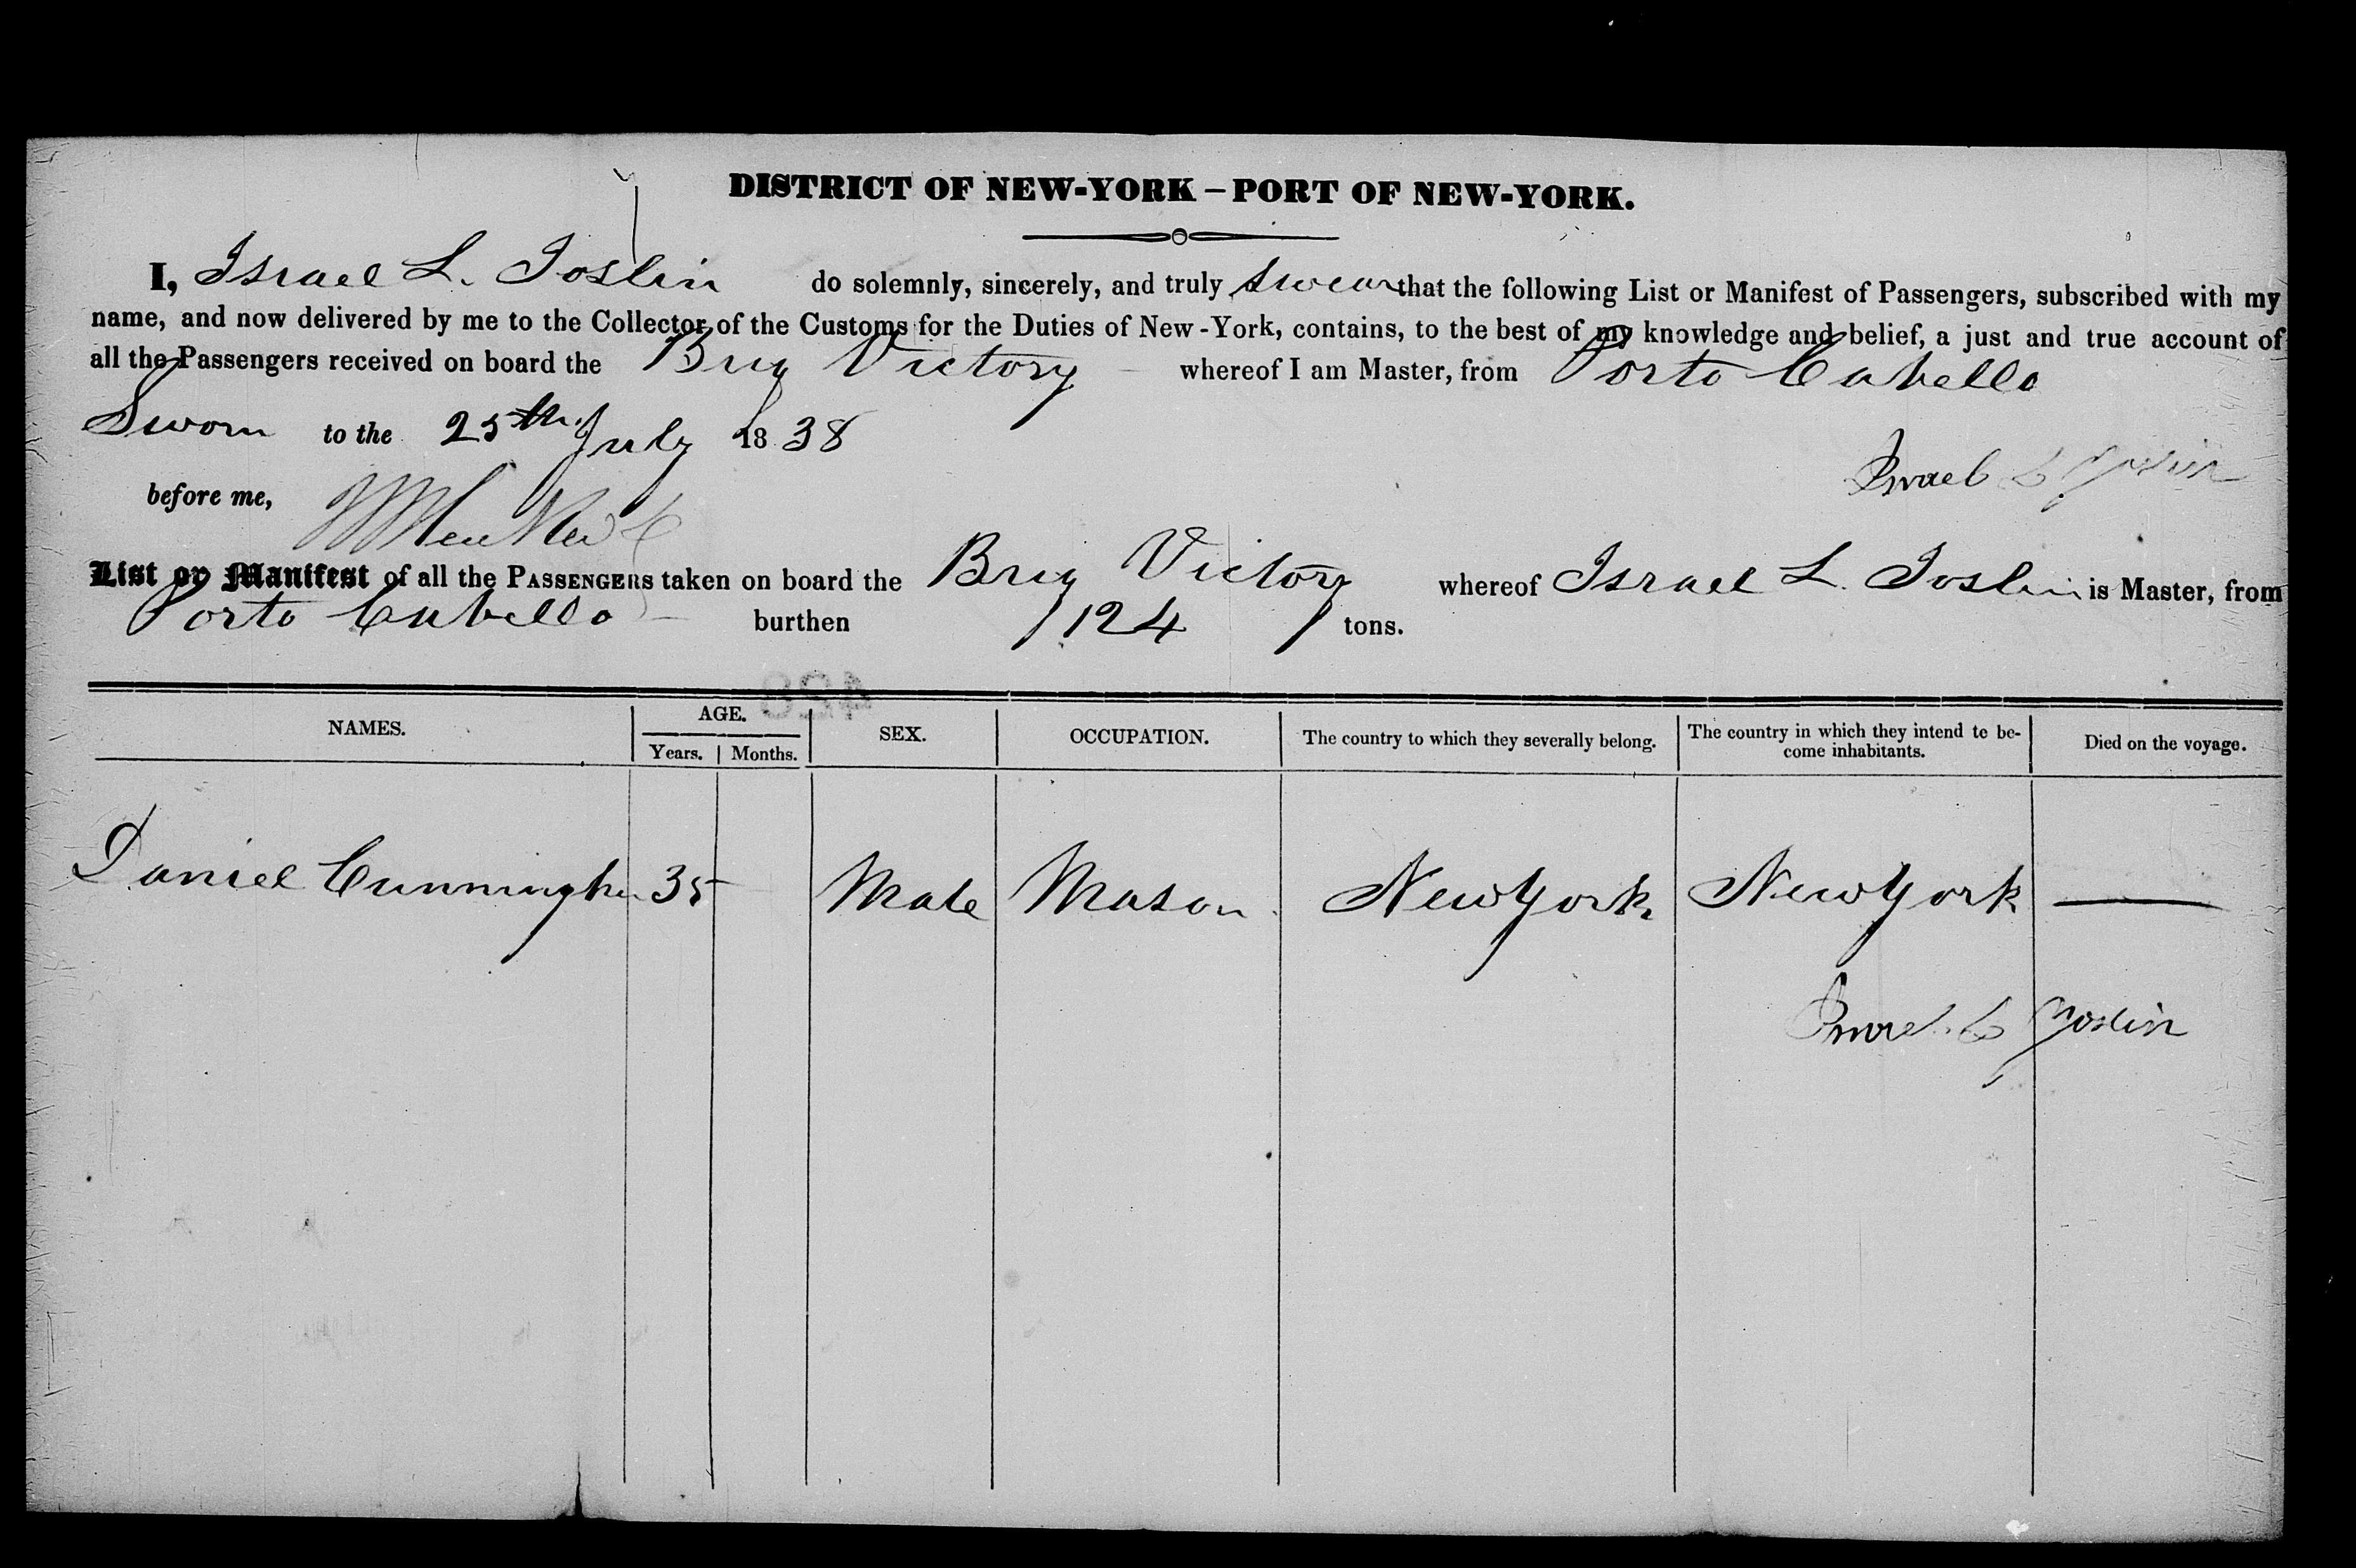 DISTRICT OF NEW-YORK – PORT OF NEW-YORK.
I, Israel L. Joslin do solemnly, sincerely, and truly swear that the following List or Manifest of Passengers, subscribed with my
name, and now delivered by me to the Collector of the Customs for the Duties of New-York, contains, to the best of my knowledge and belief, a just and true account of
all the Passengers received on board the Brig Victory whereof I am Master, from Porto Cabello
Sworn to the 25th July 1838
Israel L Joslin
before me,
List or Manifest of all the PASSENGERS taken on board the Brig Victory whereof Israel L. Joslin is Master, from
Porto Cabello burthen 124 tons.
428
NAMES. AGE. SEX. OCCUPATION. The country to which they severally belong. The country in which they intend to be-
come inhabitants. Died on the voyage.
Years. Months.
Daniel Cunningha 35 Male Mason New York New York —
Israel L Joslin